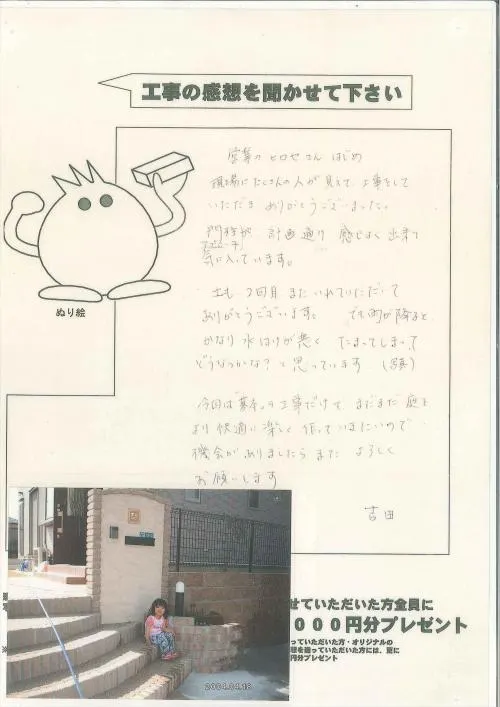 工事の感想を聞かせて下さい
営業の ヒロセさん はじめ
現場にたくさんの人が見えて 工事をして
いただき ありがとうございました。
門柱が 計画通り 感じよく 出来て
アプローチ
気に入っています。
土も 2回目 また いれていただいて
ありがとうございます。 でも雨が降ると
かなり 水はけが悪く たまってしまって
どうなのかな? と思っています (写真)
今回は"基本"の工事だけで まだまだ 庭を
より快適に楽しく 作っていきたいので
機会がありましたら また よろしく
お願いします
吉田
ぬり絵
せていただいた方全員に
000円分プレゼント
っていただいた方・オリジナルの
想を送っていただいた方には、更に
円分プレゼント
2004.04.18